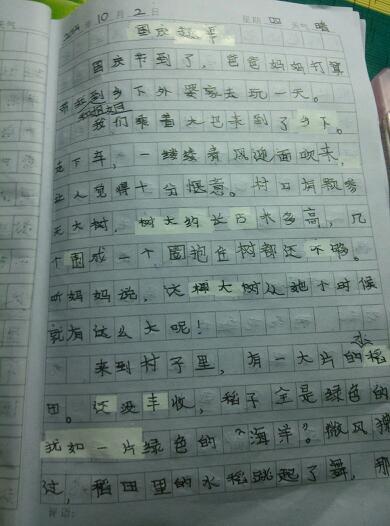 2014年10月2日 星期四 天气晴
国庆趣事
国庆节到了，爸爸妈妈打算
带我到乡下外婆家去玩一天。
和姐姐
我们乘着大巴来到了乡下。
走下车，一缕缕清风迎面吹来，
让人觉得十分惬意。村口有颗参
天大树，树大约长百米多高，几
个围成一个圈抱住树都还不够。
听妈妈说，这棵大树从她小时候
就有这么大呢！
来到村子里，有一大片的稻
水
田。还没丰收，稻子全是绿色的
犹如一片绿色的“海洋”。微风
过，稻田里的水稻跳起了舞，那
评语：